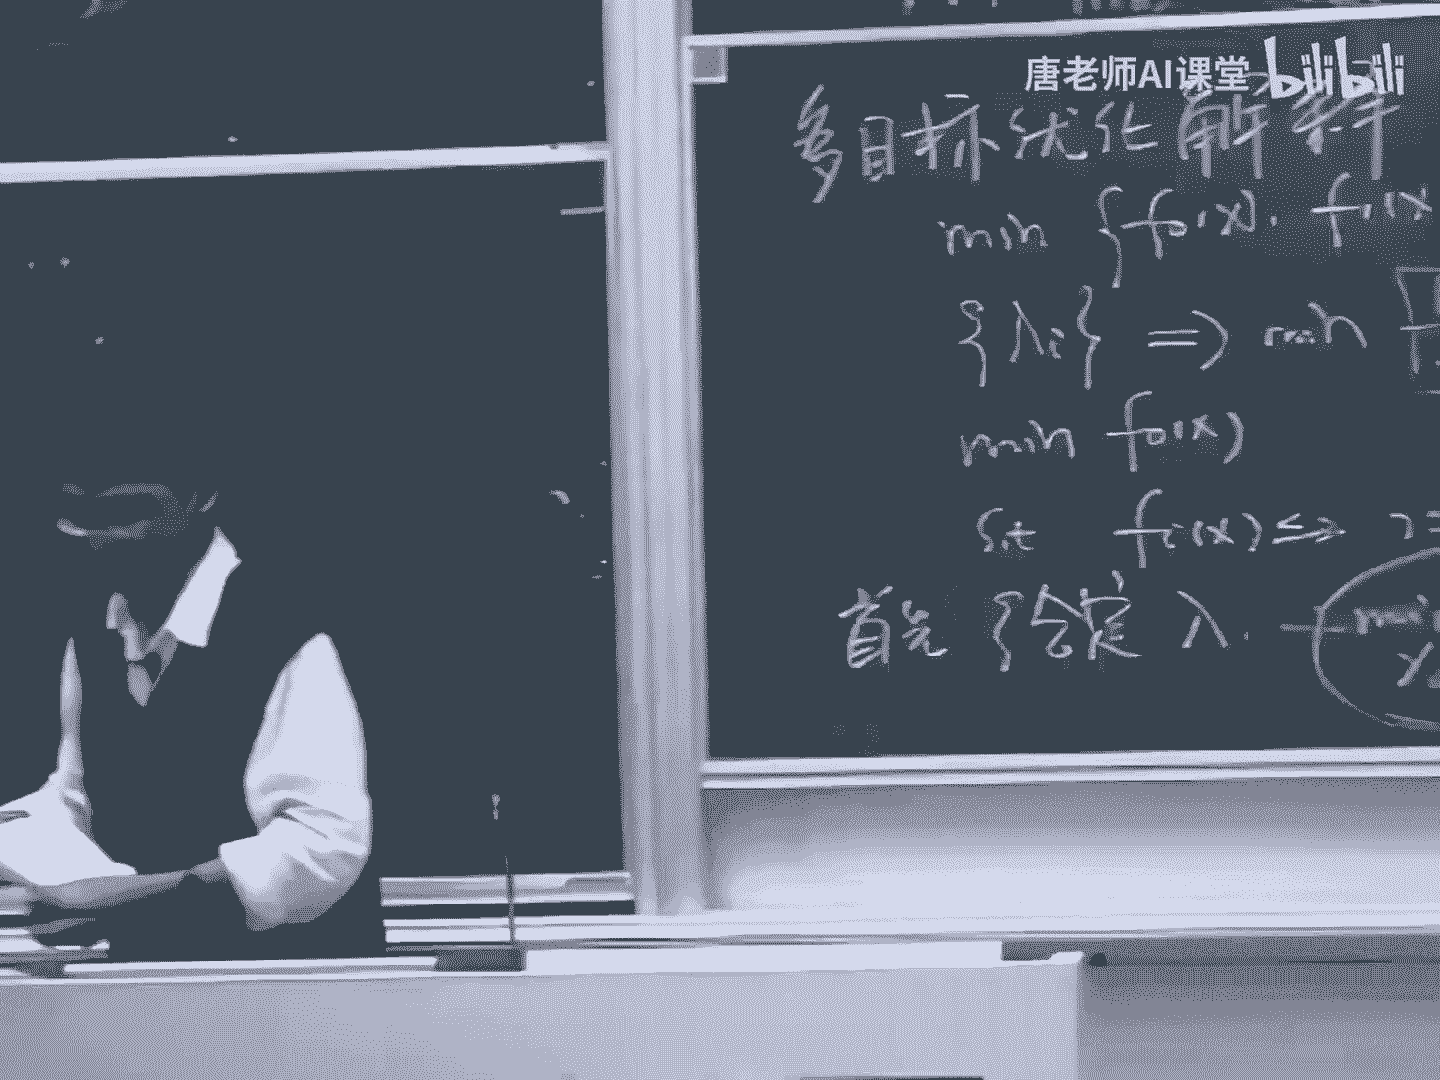 唐老师AI课堂 bilibili
多目标优化解释
min {f₀(x), f₁(x
{λᵢ} => min
min f₀(x)
s.t fᵢ(x)≤
首先 给定 λ. min